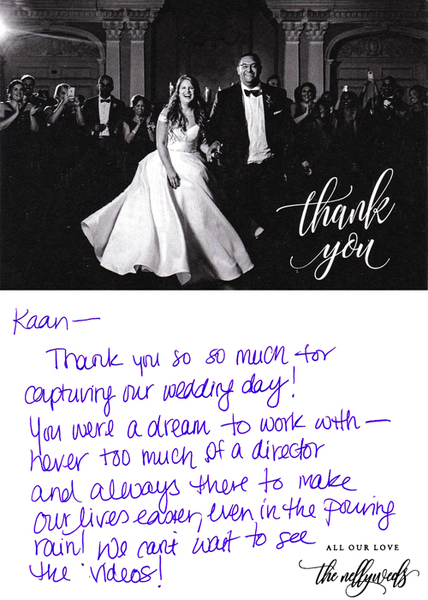 thank
you
Kaan—
Thank you so so much for
capturing our wedding day!
You were a dream to work with—
never too much of a director
and always there to make
our lives easier, even in the pouring
rain! We can't wait to see
the videos!
ALL OUR LOVE
the nellyweds